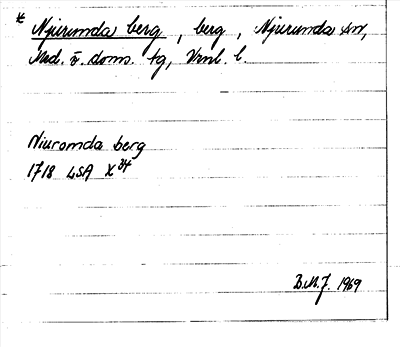 * Njurunda berg, berg, Njurunda sn,
Med. v. doms. tg, Vrnl. l.
Niuromda berg
1718 LSA X 34
B.M.J. 1969